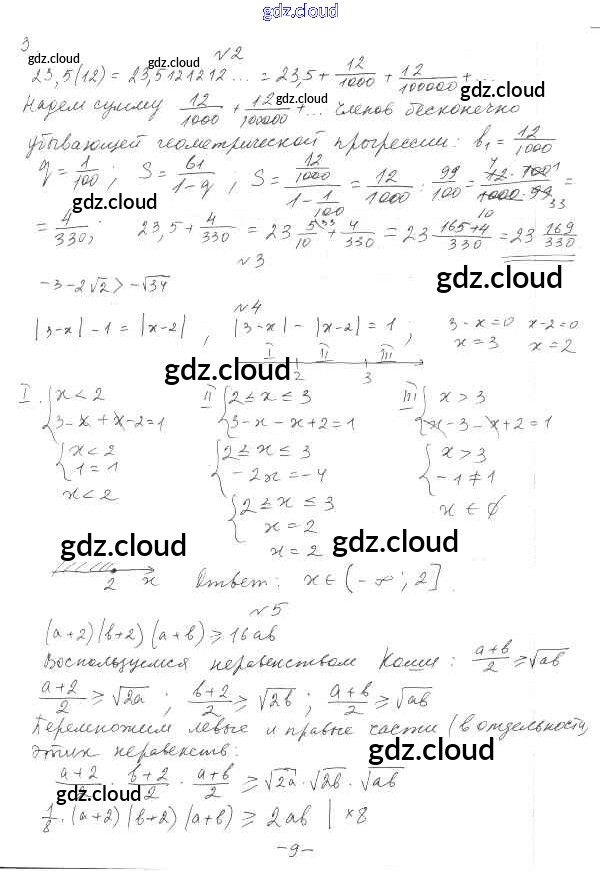 gdz.cloud
gdz.cloud
3
№2
gdz.cloud
gdz.cloud
23,5(12) = 23,5121212... = 23,5 + 12/1000 + 12/100000 + ...
Надем сумму 12/1000 + 12/100000 + ... членов бесконечно
gdz.cloud
убывающей геометрической прогрессии: b₁ = 12/1000
q = 1/100; S = b1/(1-q); S = (12/1000)/(1 - 1/100) = 12/1000 : 99/100 = (12·100)/(1000·99) =
gdz.cloud
= 4/330; 23,5 + 4/330 = 23 5/10 + 4/330 = 23 (165+4)/330 = 23 169/330
№3
-3-2√2 > -√34
gdz.cloud
№4
|3-x| - 1 = |x-2| , |3-x| - |x-2| = 1 ; 3-x=0 x-2=0
x=3 x=2
I II III
gdz.cloud
2 3
I. { x < 2 II { 2 ≤ x ≤ 3 III { x > 3
3-x+x-2=1 3-x-x+2=1 x-3-x+2=1
{ x < 2 { 2 ≤ x ≤ 3 { x > 3
1 = 1 -2x = -4 -1 ≠ 1
x < 2 { 2 ≤ x ≤ 3 x ∈ ∅
x = 2
gdz.cloud x = 2 gdz.cloud
2 x Ответ: x ∈ (-∞; 2].
№5
(a+2)(b+2)(a+b) ≥ 16ab
Воспользуемся неравенством Коши: (a+b)/2 ≥ √ab
(a+2)/2 ≥ √2a ; (b+2)/2 ≥ √2b ; (a+b)/2 ≥ √ab
Перемножим левые и правые части (в отдельности)
этих неравенств: gdz.cloud
(a+2)/2 · (b+2)/2 · (a+b)/2 ≥ √2a · √2b · √ab
gdz.cloud
1/8 · (a+2)(b+2)(a+b) ≥ 2ab | ×8
-9-
gdz.cloud